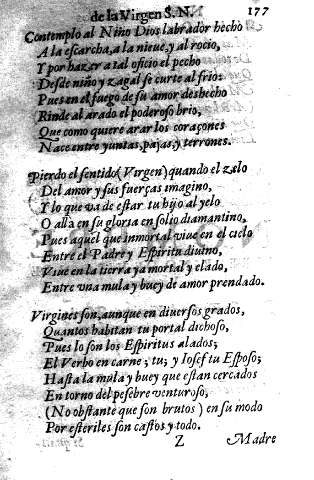 de la Virgen S. N. 177
Contemplo al Niño Dios labrador hecho
A la escarcha, a la nieue, y al rocio,
Y por hazer a tal oficio el pecho
Desde niño y zagal se curte al frio:
Pues en el fuego de su amor deshecho
Rinde al arado el poderoso brio,
Que como quiere arar los coraçones
Nace entre yuntas, pajas, y terrones.
Pierdo el sentido (Virgen) quando el zelo
Del amor y sus fuerças imagino,
Y lo que va de estar tu hijo al yelo
O alla en su gloria en solio diamantino,
Pues aquel que inmortal viue en el cielo
Entre el Padre y Espiritu diuino,
Viue en la tierra ya mortal y elado,
Entre vna mula y buey de amor prendado.
Virgines son, aunque en diuersos grados,
Quantos habitan tu portal dichoso,
Pues lo son los Espiritus alados;
El Verbo en carne; tu; y Iosef tu Esposo;
Hasta la mula y buey que estan cercados
En torno del pesebre venturoso,
(No obstante que son brutos) en su modo
Por esteriles son castos y todo.
Z Madre